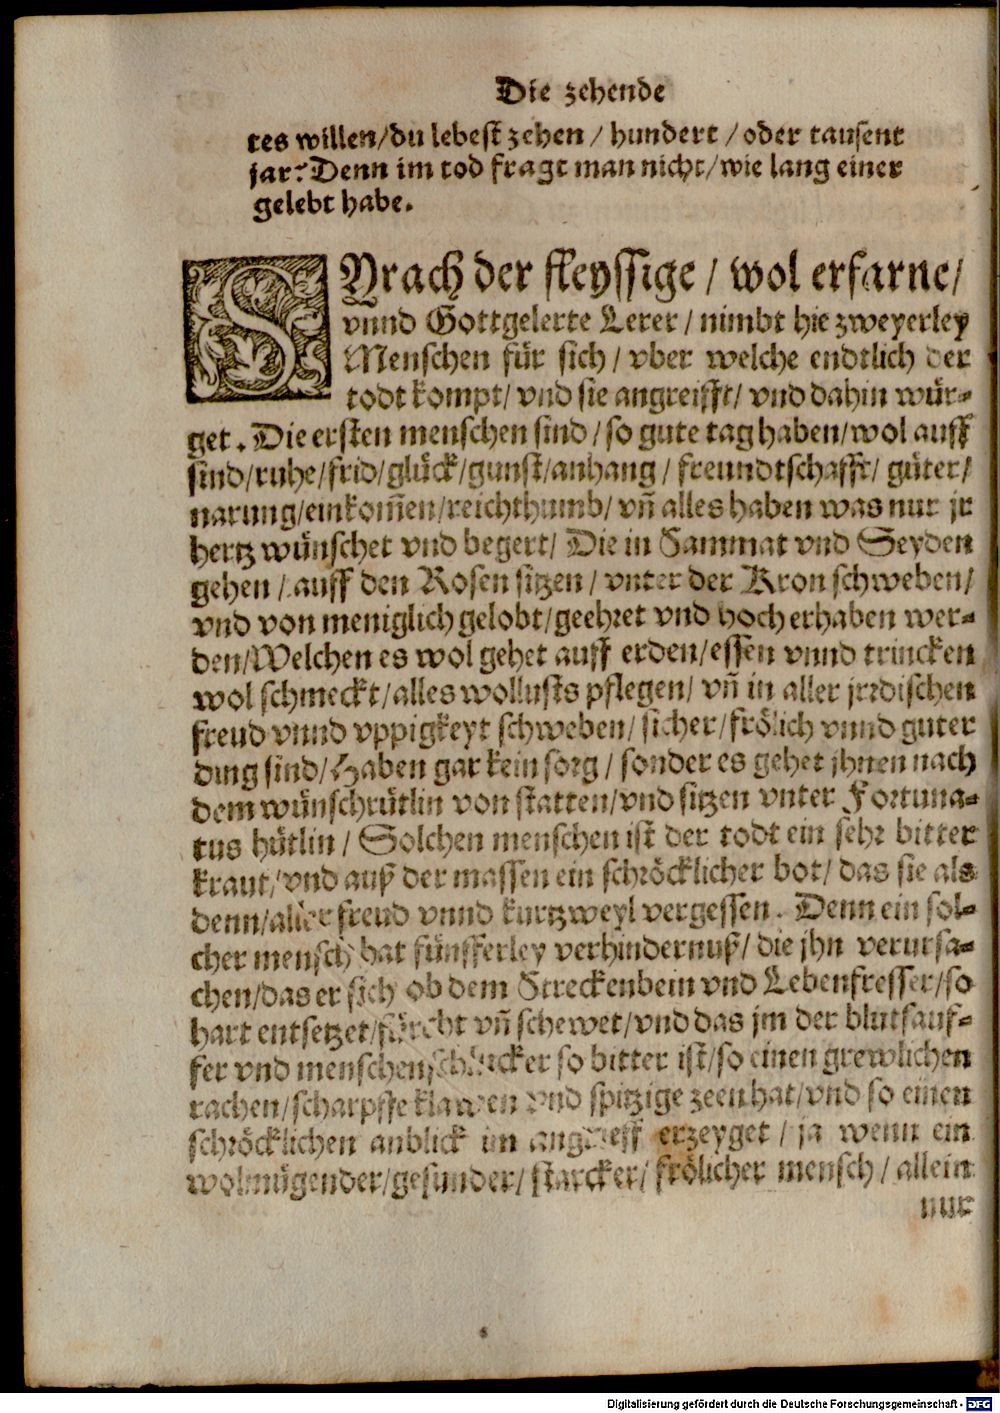 Die zehende
tes willen/du lebest zehen / hundert / oder tausent
jar? Denn im tod fragt man nicht/wie lang einer
gelebt habe.
SYrach der fleyssige / wol erfarne/
vnnd Gottgelerte Lerer / nimbt hie zweyerley
Menschen für sich / vber welche endtlich der
todt kompt/ vnd sie angreifft/ vnd dahin wür-
get. Die ersten menschen sind / so gute tag haben/wol auff
sind/ruhe/frid/glück/gunst/anhang / freundtschafft/ güter/
narung/einkom̃en/reichthumb/ vñ alles haben was nur jr
hertz wünschet vnd begert/ Die in Sammat vnd Seyden
gehen / auff den Rosen sitzen / vnter der Kron schweben/
vnd von meniglich gelobt/geehret vnd hoch erhaben wer-
den/Welchen es wol gehet auff erden/essen vnnd trincken
wol schmeckt/alles wollusts pflegen/ vñ in aller jrrdischen
freud vnnd vppigkeyt schweben/ sicher/frölich vnnd guter
ding sind/Haben gar kein sorg / sonder es gehet jhnen nach
dem wünschrütlin von statten/vnd sitzen vnter Fortuna-
tus hütlin / Solchen menschen ist der todt ein sehr bitter
kraut/ vnd auß der massen ein schröcklicher bot/ das sie als
denn/aller freud vnnd kurtzweyl vergessen. Denn ein sol-
cher mensch hat fünfferley verhindernuß/ die jhn verursa-
chen/das er sich ob dem Streckenbein vnd Lebenfresser/so
hart entsetzet/fürcht vñ schewet/vnd das jm der blutsauf-
fer vnd menschenschlucker so bitter ist/so einen grewlichen
rachen/scharpffe klawen vnd spitzige zeen hat/vnd so einen
schröcklichen anblick im angrieff erzeyget / ja wenn ein
wolmügender/gesunder/ starcker/ frölicher mensch / allein
nur
Digitalisierung gefördert durch die Deutsche Forschungsgemeinschaft - DFG